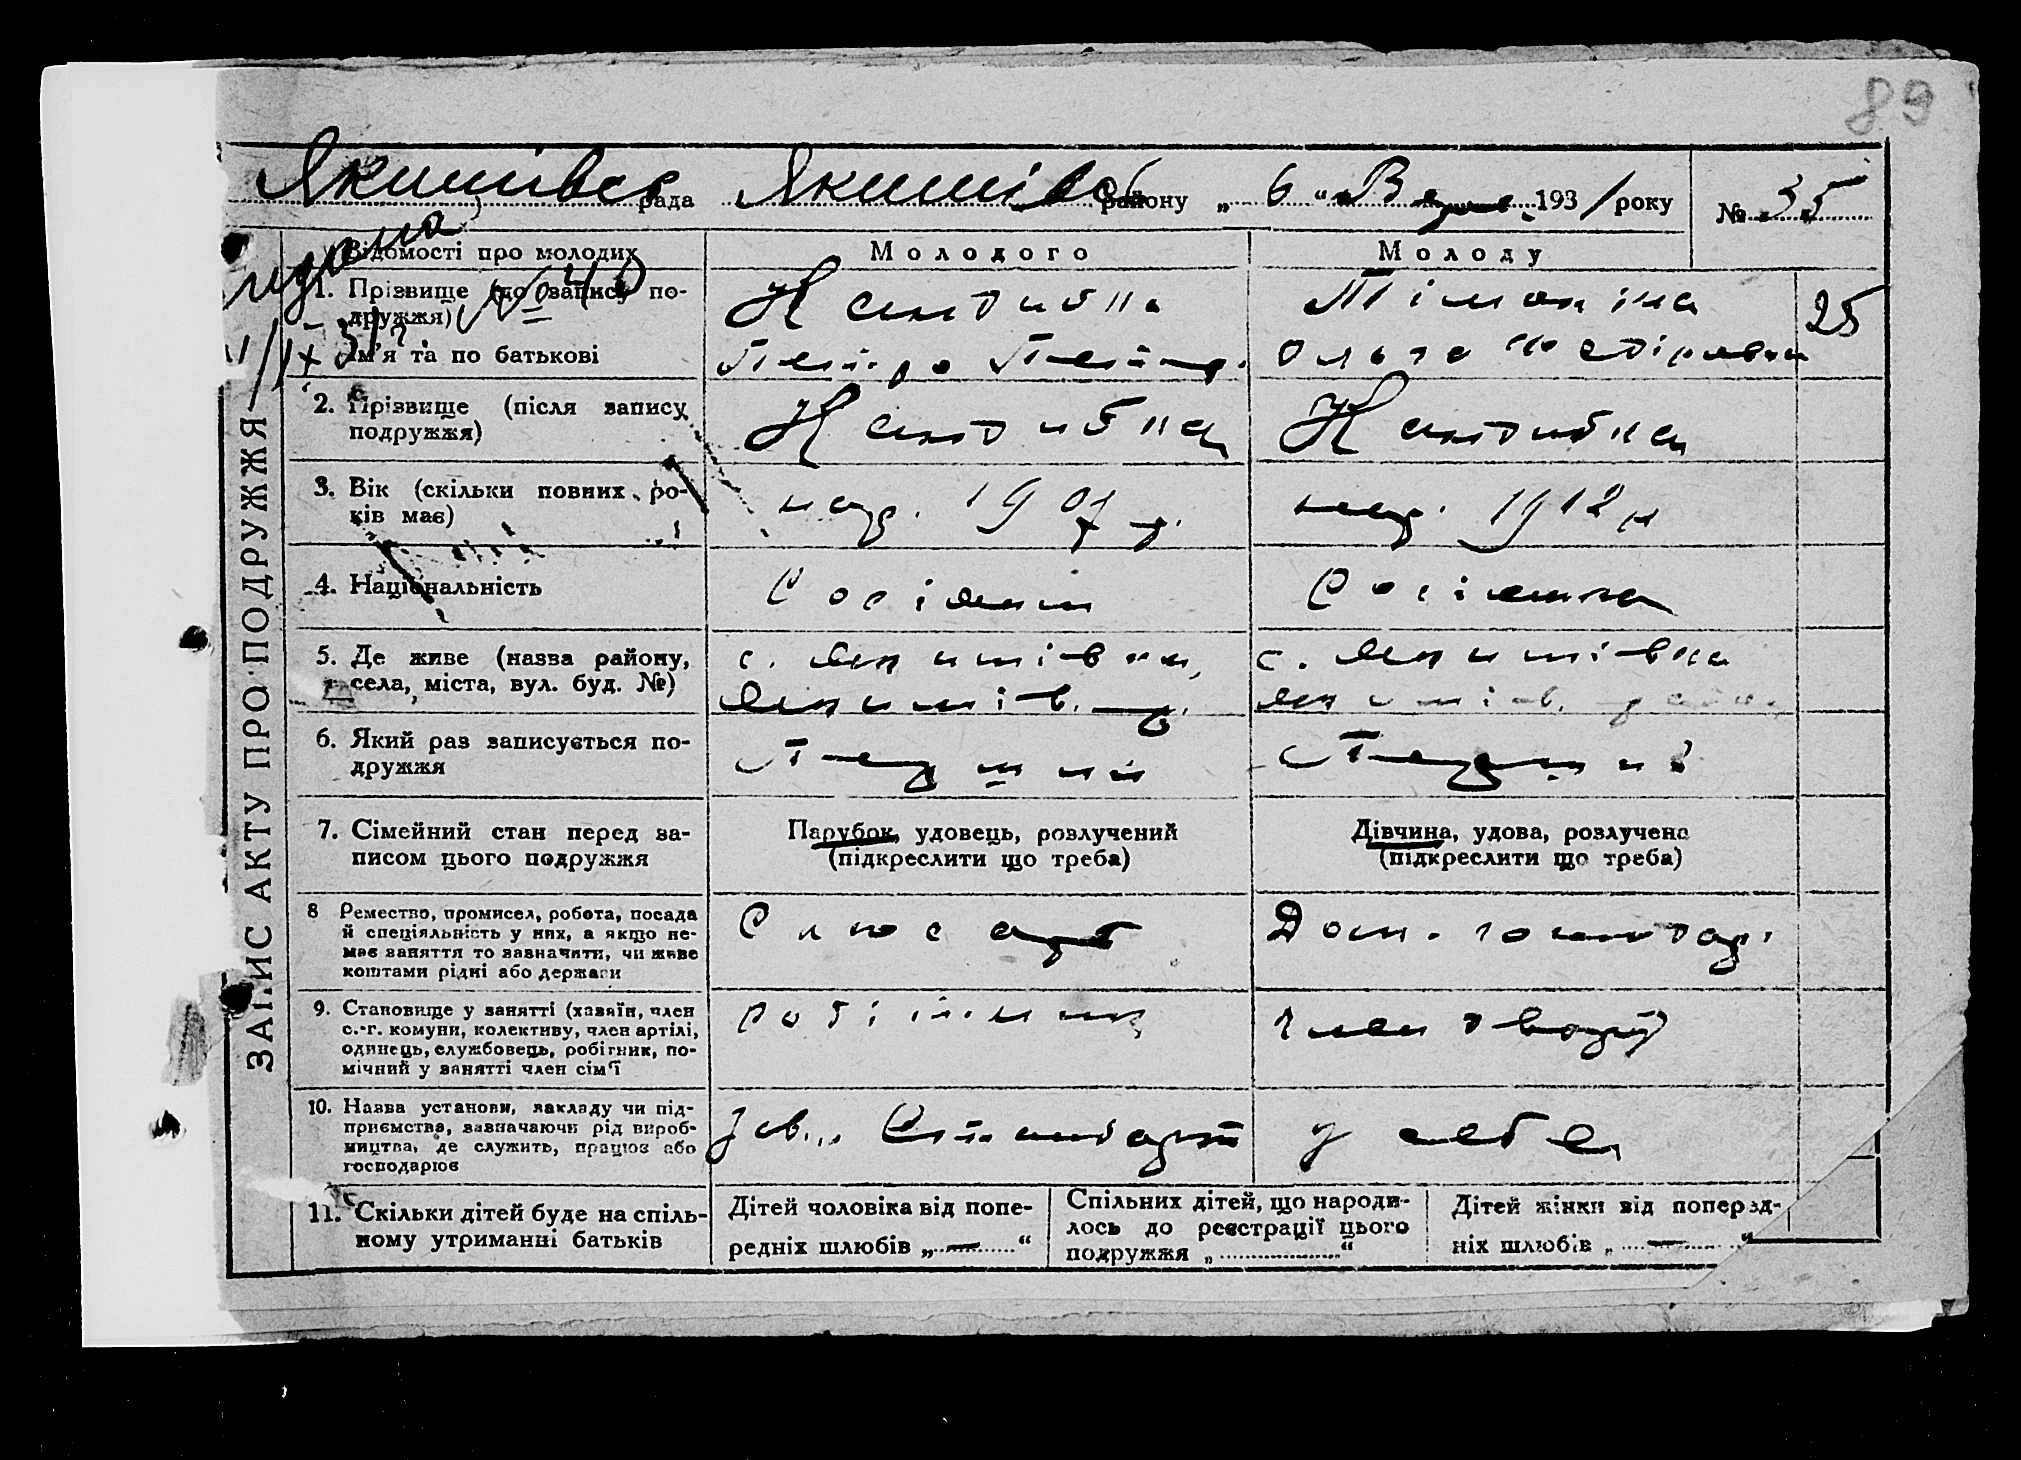 89
Якимівсь рада Якимівсь району „ 6 “ Вер. 1931 року № 35
Відомості про молодих Молодого Молоду
1. Прізвище (до запису подружжя) № 40
25
Ім'я та по батькові Петро Петр. Ольга
2. Прізвище (після запису
подружжя)
3. Вік (скільки повних ро-
ків має) нар. 1907 р. нар. 1912 р
4. Національність Росіянин Росіянка
5. Де живе (назва району, с. Якимівка, с. Якимівка
села, міста, вул. буд. №) Якимів. р. Якимів. район
6. Який раз записується по- Перший Перший
дружжя
7. Сімейний стан перед за- Парубок, удовець, розлучений Дівчина, удова, розлучена
писом цього подружжя (підкреслити що треба) (підкреслити що треба)
8 Ремество, промисел, робота, посада Слюсарь Дом. господар.
й спеціяльність у них, а якщо не-
має заняття то зазначити, чи живе
коштами рідні або держави
9. Становище у занятті (хазяїн, член робітник член
с.-г. комуни, колективу, член артілі,
одинець, службовець, робітник, по-
мічний у занятті член сім'ї
10. Назва установи, закладу чи під- у себе
приємства, зазначаючи рід вироб-
ництва, де служить, працює або
господарює
11. Скільки дітей буде на спіль-
ному утриманні батьків
Дітей чоловіка від попе-
редніх шлюбів „ — “
Спільних дітей, що народи-
лось до реєстрації цього
подружжя „ “
Дітей жінки від поперед-
ніх шлюбів „ — “
ЗАПИС АКТУ ПРО ПОДРУЖЖЯ